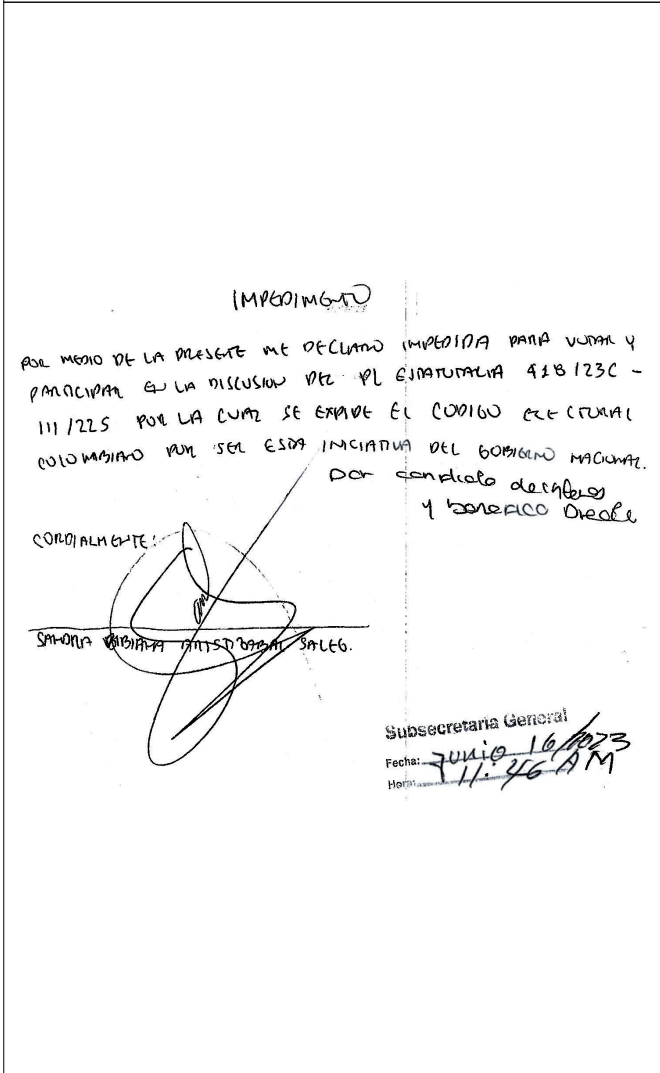 IMPEDIMENTO
POR MEDIO DE LA PRESENTE ME DECLARO IMPEDIDA PARA VOTAR Y
PARTICIPAR EN LA DISCUSION DEL PL ESTATUTARIA 418/23C -
111/22S POR LA CUAL SE EXPIDE EL CODIGO ELECTORAL
COLOMBIANO POR SER ESTA INICIATIVA DEL GOBIERNO NACIONAL.
Por
y Directo
CORDIALMENTE:
SANDRA BIBIANA ARISTIZABAL SALEG.
Subsecretaria General
Fecha: Junio 16/2023
Hora: 11:46 AM